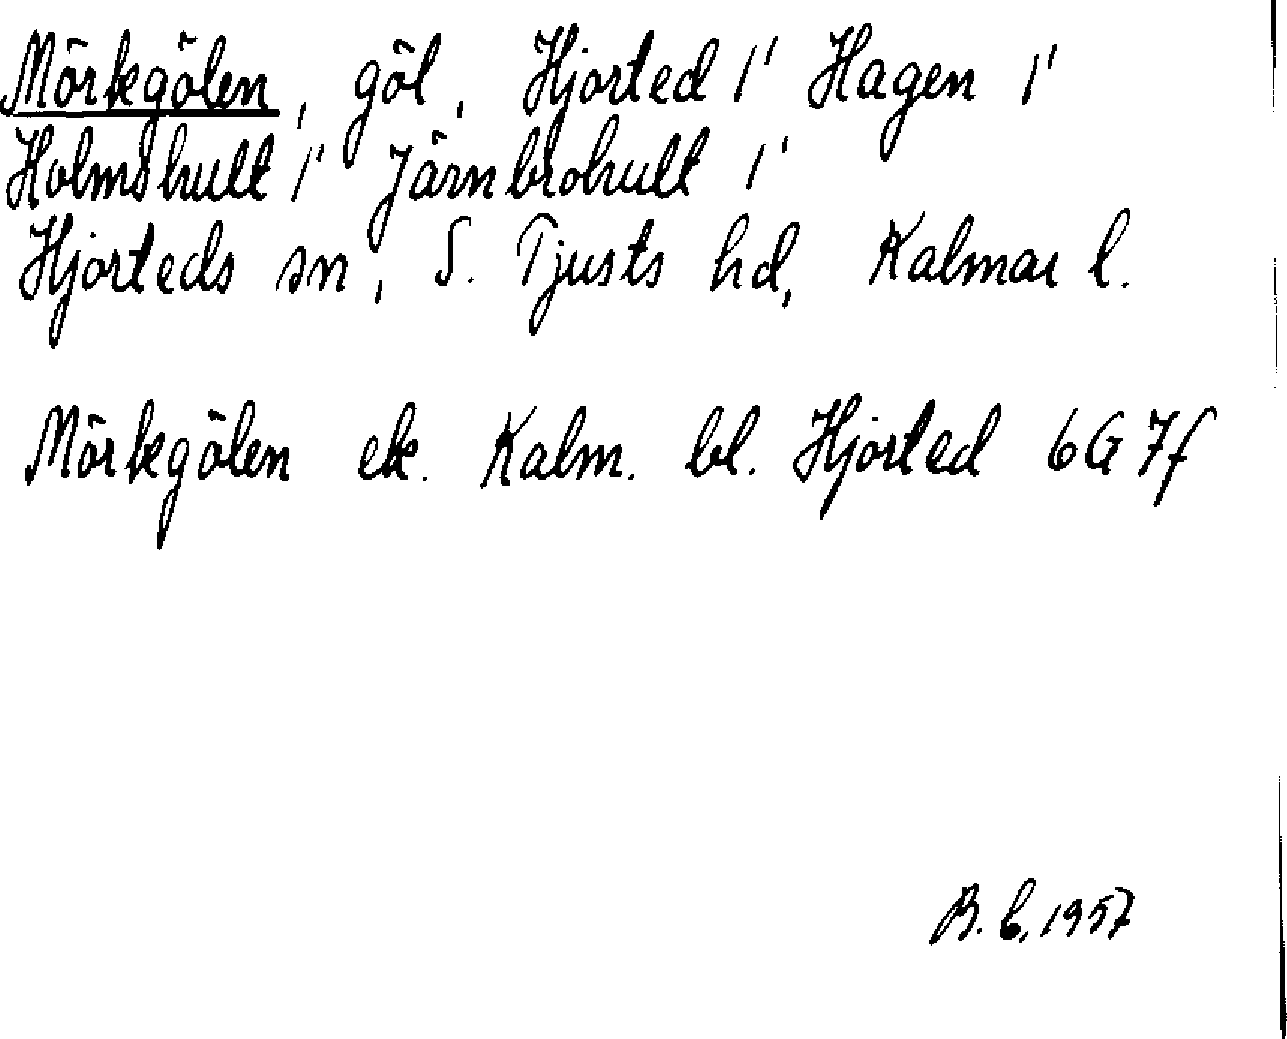 Mörkegölen, göl, Hjorted 1' Hagen 1'
Holmshult 1' Järnbrohult 1'
Hjorteds sn, S. Tjusts hd, Kalmar l.
Mörkegölen ek. Kalm. bl. Hjorted 6G 7f
B. 6, 1957